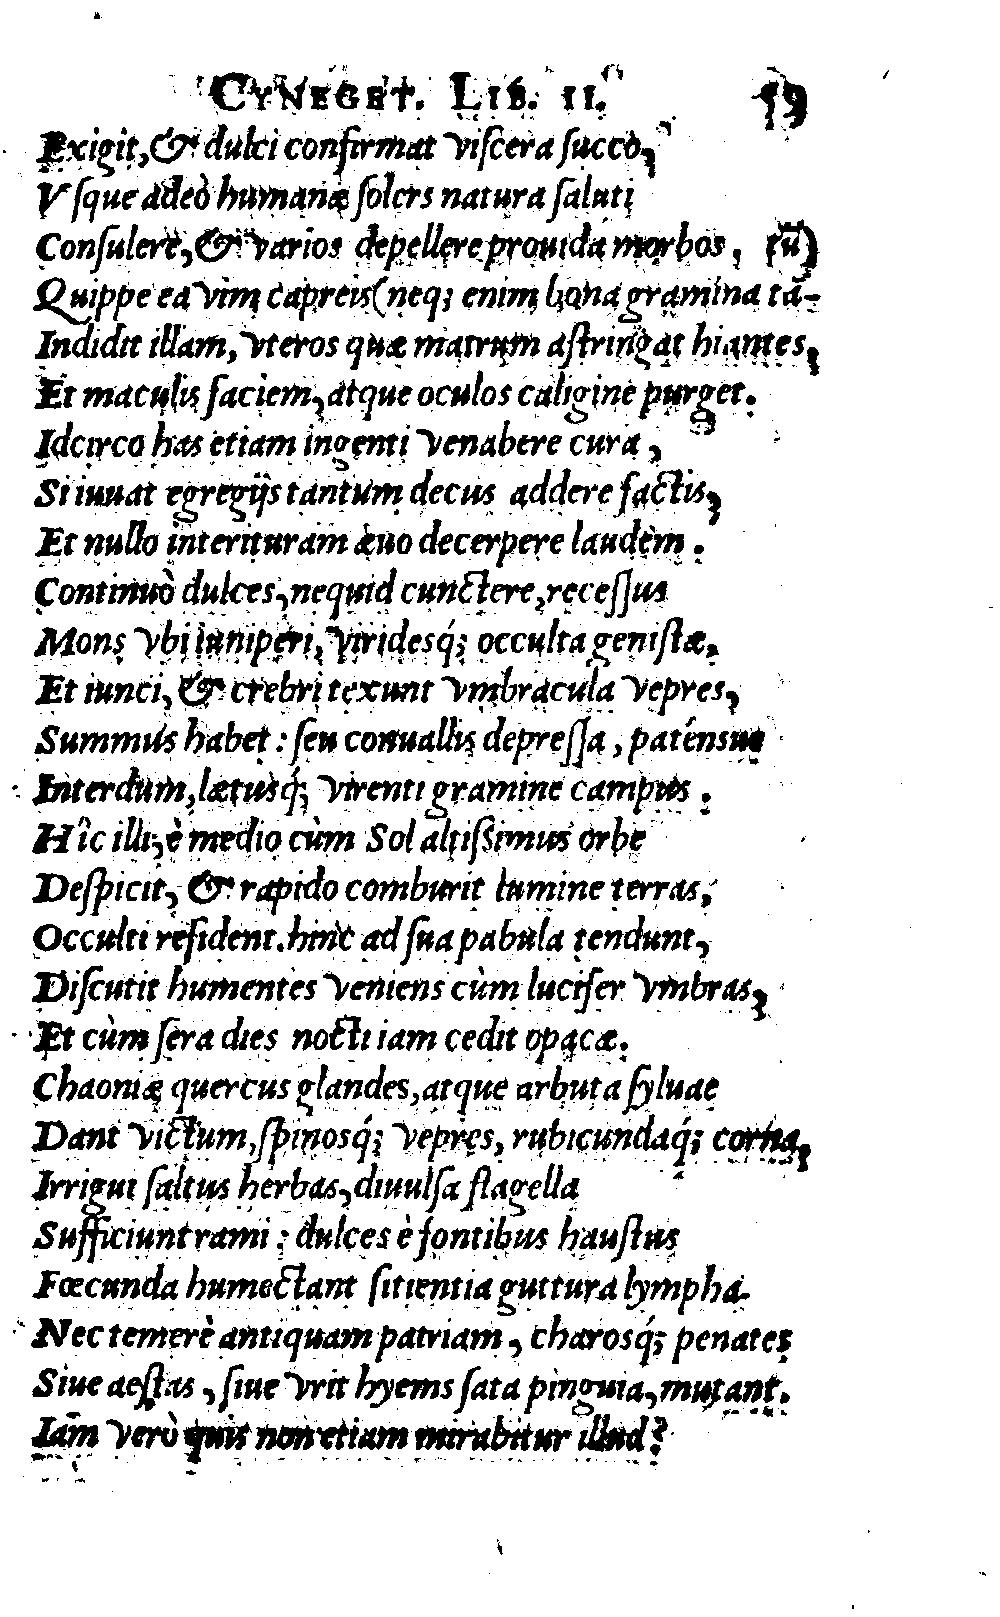 CYNEGET. LIB. II. 19
Exigit, & dulci confirmat viſcera ſucco,
Vſque adeò humanæ ſolers natura ſaluti
Conſulere, & varios depellere prouida morbos, tū)
Quippe ea vim capreis (neq; enim bona gramina tā-
Indidit illam, vteros quæ matrum aſtringat hiantes,
Et maculis faciem, atque oculos caligine purget.
Idcirco has etiam ingenti venabere cura,
Si iuuat egregijs tantum decus addere factis,
Et nullo interituram æuo decerpere laudem.
Continuò dulces, nequid cunctere, receſſus
Mons vbi iuniperi, viridesq́; occulta geniſtæ,
Et iunci, & crebri texunt vmbracula vepres,
Summus habet: ſeu conuallis depreſſa, paténsue
Interdum, lætusq́; virenti gramine campus.
Hîc illi, è medio cùm Sol altiſsimus orbe
Deſpicit, & rapido comburit lumine terras,
Occulti reſident. hinc ad ſua pabula tendunt,
Diſcutit humentes veniens cùm lucifer vmbras,
Et cùm ſera dies nocti iam cedit opacæ.
Chaoniæ quercus glandes, atque arbuta ſyluae
Dant victum, ſpinosq́; vepres, rubicundaq́; corna,
Irrigui ſaltus herbas, diuulſa flagella
Sufficiunt rami: dulces è fontibus hauſtus
Fœcunda humectant ſitientia guttura lympha.
Nec temerè antiquam patriam, charosq́; penates
Siue aeſtas, ſiue vrit hyems ſata pinguia, mutant.
Iam verò quis non etiam mirabitur illud?